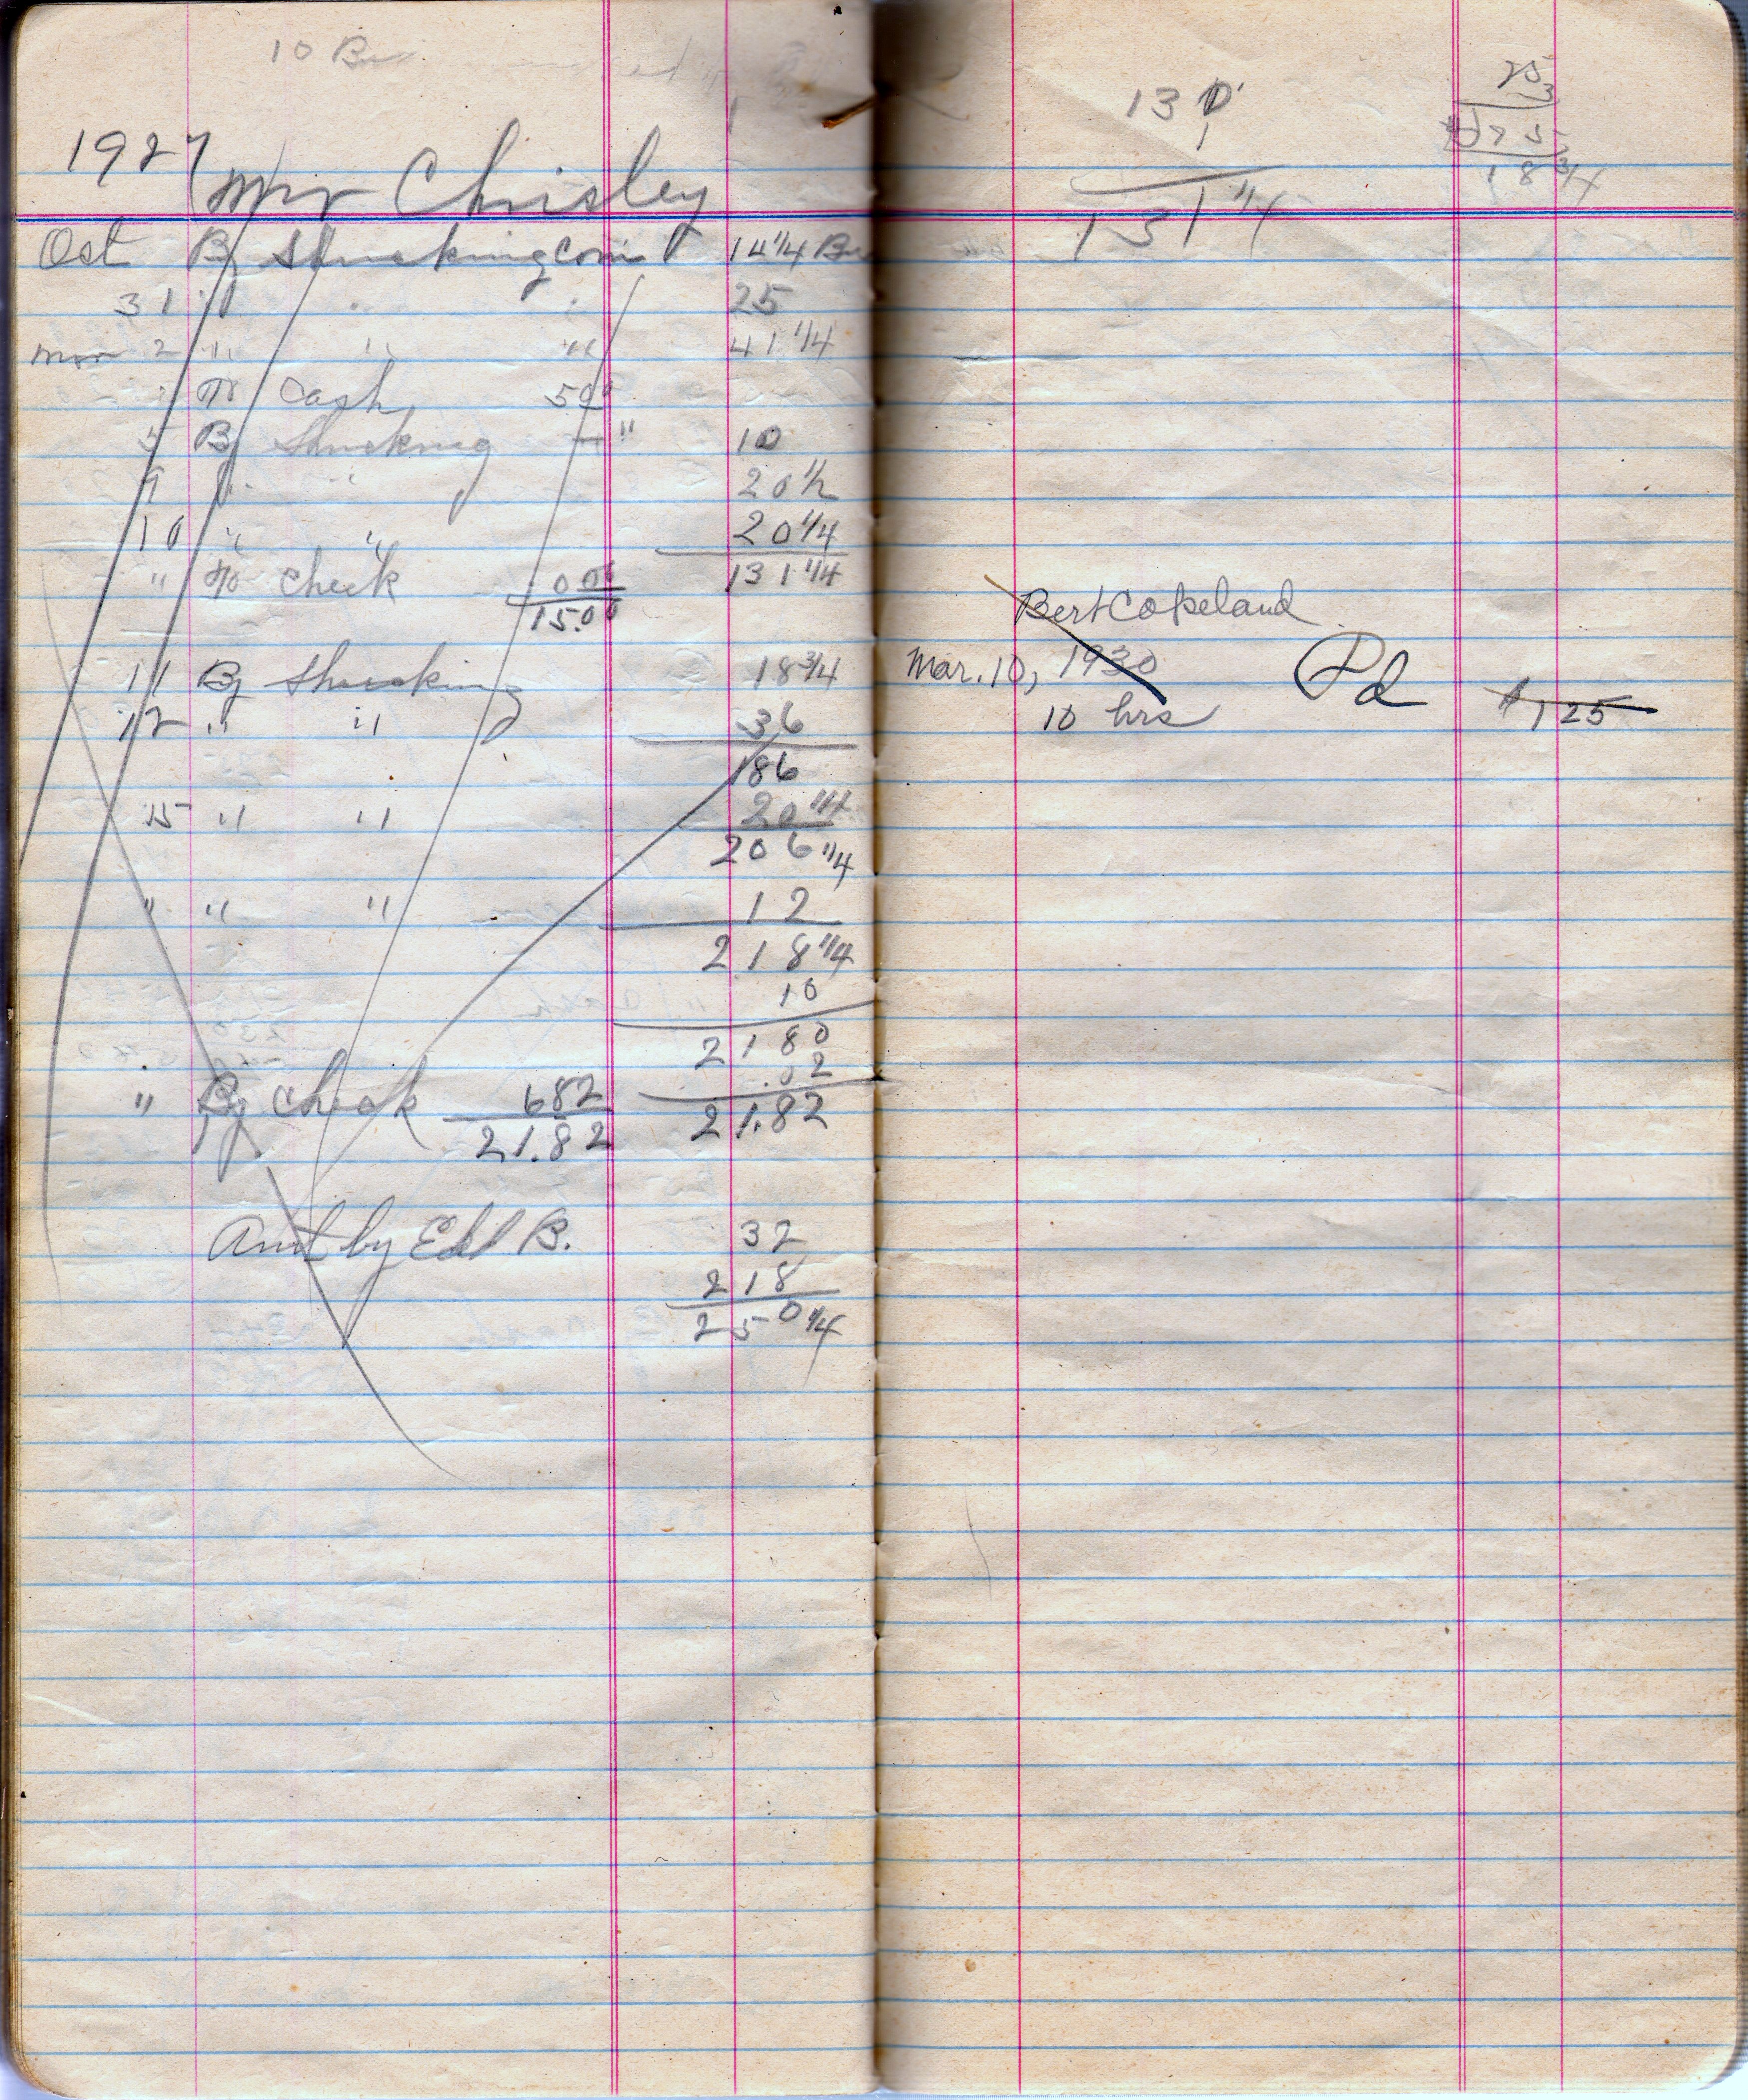 10 Bu
1927 Mr Chrisley
Oct By Shucking corn 14 1/4 Bu
31 " " " 25
Nov 2 " " " 41 1/4
" To Cash 5 00
5 By Shucking " 10
9 " " 20 1/2
10 " " 20 1/4
131 1/4
" To Check 10 00
15.00
11 By Shucking 18 3/4
12 " " 36
186
15 " " 20 1/4
206 1/4
" " " 12
218 1/4
10
2180
.02
" By check 682 21.82
21.82
Amt by Ed B. 32
218
250 1/4
130
1
131 1/4
25
3
4 75
18 3/4
Bert Copeland
Mar. 10, 1930 Pd
10 hrs $1 25